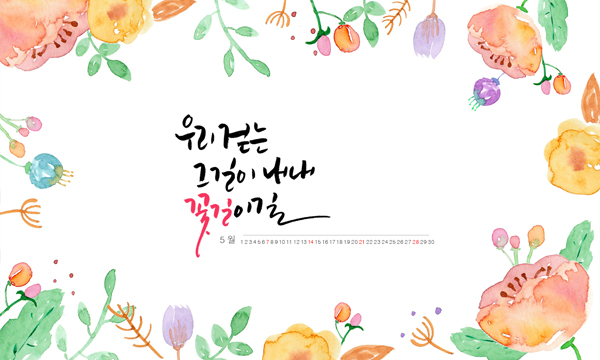 우리 걷는
그 길이 내내
꽃길이길
5월 1 2 3 4 5 6 7 8 9 10 11 12 13 14 15 16 17 18 19 20 21 22 23 24 25 26 27 28 29 30